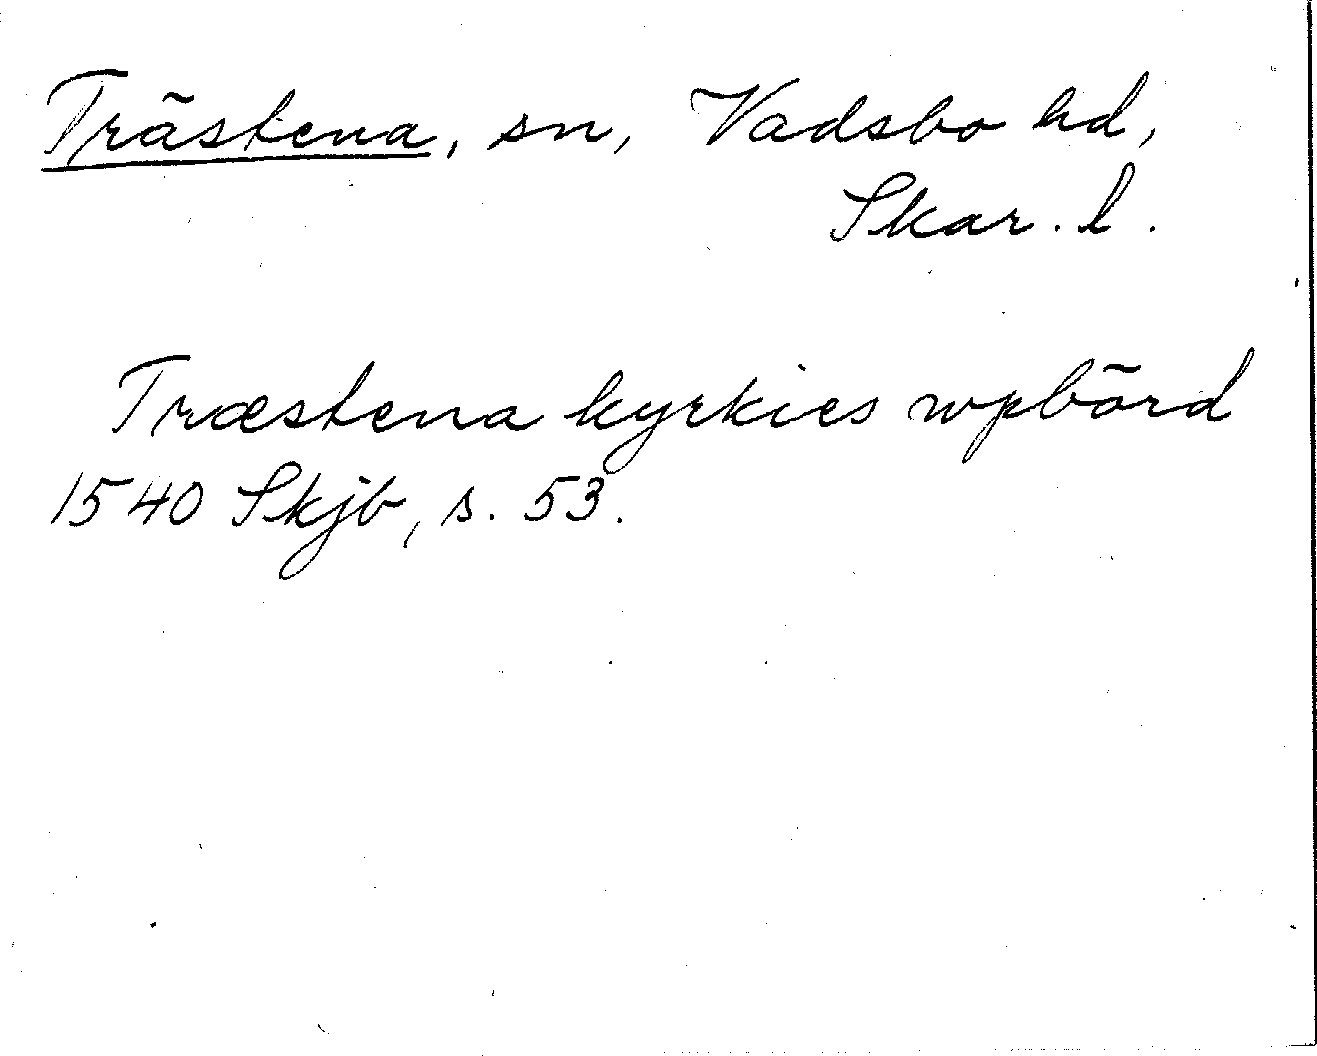 Trästena, sn, Vadsbo hd,
Skar. l.
Træstena kyrkies wpbörd
1540 Skjb, s. 53.